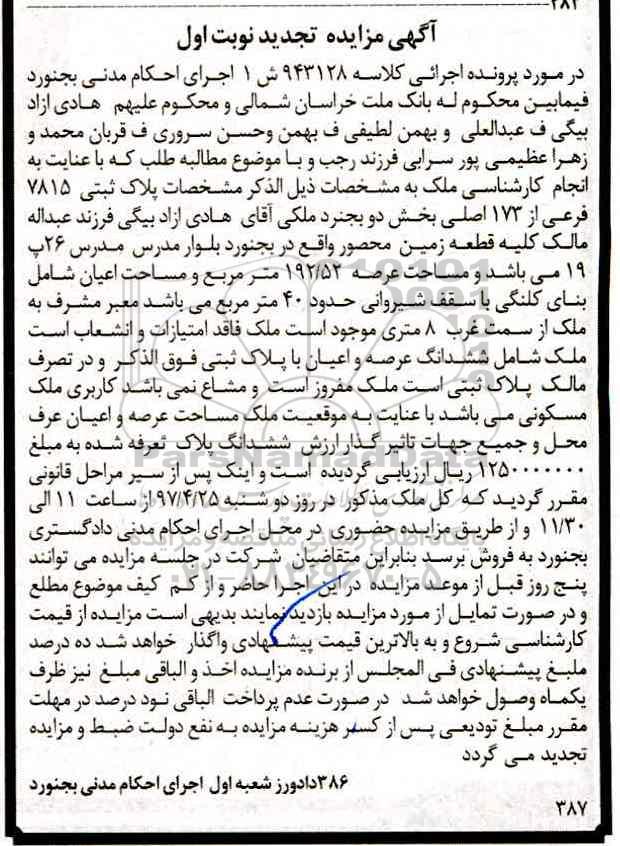 ۲۸۲
آگهی مزایده تجدید نوبت اول
در مورد پرونده اجرائی کلاسه ۹۴۳۱۲۸ ش ۱ اجرای احکام مدنی بجنورد
فیمابین محکوم له بانک ملت خراسان شمالی و محکوم علیهم هادی ازاد
بیگی ف عبدالعلی و بهمن لطیفی ف بهمن وحسن سروری ف قربان محمد و
زهرا عظیمی پور سرابی فرزند رجب و با موضوع مطالبه طلب که با عنایت به
انجام کارشناسی ملک به مشخصات ذیل الذکر مشخصات پلاک ثبتی ۷۸۱۵
فرعی از ۱۷۳ اصلی بخش دو بجنرد ملکی آقای هادی ازاد بیگی فرزند عبداله
مالک کلیه قطعه زمین محصور واقع در بجنورد بلوار مدرس مدرس ۲۶پ
۱۹ می باشد و مساحت عرصه ۱۹۲/۵۲ متر مربع و مساحت اعیان شامل
بنای کلنگی با سقف شیروانی حدود ۴۰ متر مربع می باشد معبر مشرف به
ملک از سمت غرب ۸ متری موجود است ملک فاقد امتیازات و انشعاب است
ملک شامل ششدانگ عرصه و اعیان با پلاک ثبتی فوق الذکر و در تصرف
مالک پلاک ثبتی است ملک مفروز است و مشاع نمی باشد کاربری ملک
مسکونی می باشد با عنایت به موقعیت ملک مساحت عرصه و اعیان عرف
محل و جمیع جهات تاثیر گذار ارزش ششدانگ پلاک ثعرفه شده به مبلغ
۱۲۵۰۰۰۰۰۰۰ ریال ارزیابی گردیده است و اینک پس از سیر مراحل قانونی
مقرر گردید که کل ملک مذکور در روز دو شنبه ۹۷/۴/۲۵ از ساعت ۱۱ الی
۱۱/۳۰ و از طریق مزایده حضوری در محل اجرای احکام مدنی دادگستری
بجنورد به فروش برسد بنابراین متقاضیان شرکت در جلسه مزایده می توانند
پنج روز قبل از موعد مزایده در این اجرا حاضر و از کم کیف موضوع مطلع
و در صورت تمایل از مورد مزایده بازدید نمایند بدیهی است مزایده از قیمت
کارشناسی شروع و به بالاترین قیمت پیشنهادی واگذار خواهد شد ده درصد
ملبغ پیشنهادی فی المجلس از برنده مزایده اخذ و الباقی مبلغ نیز ظرف
یکماه وصول خواهد شد در صورت عدم پرداخت الباقی نود درصد در مهلت
مقرر مبلغ تودیعی پس از کسر هزینه مزایده به نفع دولت ضبط و مزایده
تجدید می گردد
۳۸۶دادورز شعبه اول اجرای احکام مدنی بجنورد
۳۸۷
ParsNamadData
۰۲۱-۸۸۳۴۹۶۷۰-۵